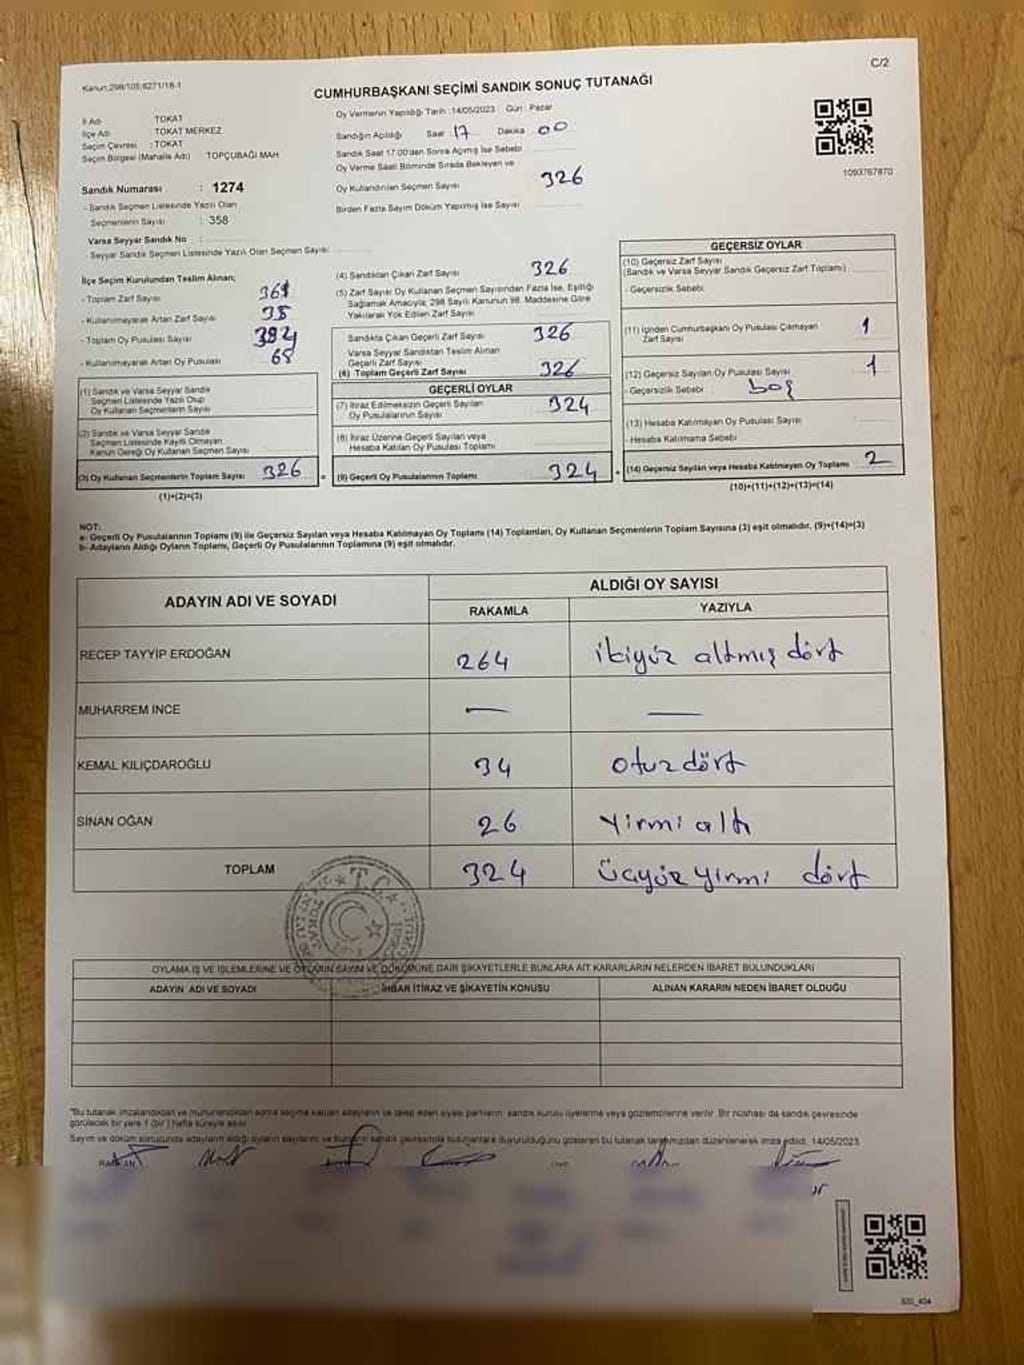 Kanun:298/105;6271/18-1
C/2
CUMHURBAŞKANI SEÇİMİ SANDIK SONUÇ TUTANAĞI
İl Adı : TOKAT
İlçe Adı : TOKAT MERKEZ
Seçim Çevresi : TOKAT
Seçim Bölgesi (Mahalle Adı) : TOPÇUBAĞI MAH.
Sandık Numarası : 1274
- Sandık Seçmen Listesinde Yazılı Olan
Seçmenlerin Sayısı : 358
Varsa Seyyar Sandık No :
- Seyyar Sandık Seçmen Listesinde Yazılı Olan Seçmen Sayısı
Oy Vermenin Yapıldığı Tarih : 14/05/2023 Gün : Pazar
Sandığın Açıldığı Saat 17 Dakika 00
Sandık Saat 17:00'den Sonra Açılmış İse Sebebi
Oy Verme Saati Bitiminde Sırada Bekleyen ve
Oy Kullandırılan Seçmen Sayısı 326
Birden Fazla Sayım Döküm Yapılmış İse Sayısı
1093767870
İlçe Seçim Kurulundan Teslim Alınan;
- Toplam Zarf Sayısı 361
- Kullanılmayarak Artan Zarf Sayısı 35
- Toplam Oy Pusulası Sayısı
- Kullanılmayarak Artan Oy Pusulası
(1) Sandık ve Varsa Seyyar Sandık
Seçmen Listesinde Yazılı Olup
Oy Kullanan Seçmenlerin Sayısı
(2) Sandık ve Varsa Seyyar Sandık
Seçmen Listesinde Kayıtlı Olmayan
Kanun Gereği Oy Kullanan Seçmen Sayısı
(3) Oy Kullanan Seçmenlerin Toplam Sayısı 326
(1)+(2)=(3)
(4) Sandıktan Çıkan Zarf Sayısı 326
(5) Zarf Sayısı Oy Kullanan Seçmen Sayısından Fazla İse, Eşitliği
Sağlamak Amacıyla; 298 Sayılı Kanunun 98. Maddesine Göre
Yakılarak Yok Edilen Zarf Sayısı
Sandıkta Çıkan Geçerli Zarf Sayısı 326
Varsa Seyyar Sandıktan Teslim Alınan
Geçerli Zarf Sayısı
(6) Toplam Geçerli Zarf Sayısı 326
GEÇERLİ OYLAR
(7) İtiraz Edilmeksizin Geçerli Sayılan
Oy Pusulalarının Sayısı 324
(8) İtiraz Üzerine Geçerli Sayılan veya
Hesaba Katılan Oy Pusulası Toplamı
= (9) Geçerli Oy Pusulalarının Toplamı 324
GEÇERSİZ OYLAR
(10) Geçersiz Zarf Sayısı
(Sandık ve Varsa Seyyar Sandık Geçersiz Zarf Toplamı)
- Geçersizlik Sebebi
(11) İçinden Cumhurbaşkanı Oy Pusulası Çıkmayan
Zarf Sayısı 1
(12) Geçersiz Sayılan Oy Pusulası Sayısı 1
- Geçersizlik Sebebi boş
(13) Hesaba Katılmayan Oy Pusulası Sayısı
- Hesaba Katılmama Sebebi
+ (14) Geçersiz Sayılan veya Hesaba Katılmayan Oy Toplamı 2
(10)+(11)+(12)+(13)=(14)
NOT:
a- Geçerli Oy Pusulalarının Toplamı (9) ile Geçersiz Sayılan veya Hesaba Katılmayan Oy Toplamı (14) Toplamları, Oy Kullanan Seçmenlerin Toplam Sayısına (3) eşit olmalıdır, (9)+(14)=(3)
b- Adayların Aldığı Oyların Toplamı, Geçerli Oy Pusulalarının Toplamına (9) eşit olmalıdır.
ADAYIN ADI VE SOYADI
ALDIĞI OY SAYISI
RAKAMLA YAZIYLA
RECEP TAYYİP ERDOĞAN 264 ikiyüz altmış dört
MUHARREM İNCE — —
KEMAL KILIÇDAROĞLU 34 otuzdört
SİNAN OĞAN 26 yirmi altı
TOPLAM 324 üçyüz yirmi dört
T.C.
OYLAMA İŞ VE İŞLEMLERİNE VE OYLARIN SAYIM VE DÖKÜMÜNE DAİR ŞİKAYETLERLE BUNLARA AİT KARARLARIN NELERDEN İBARET BULUNDUKLARI
ADAYIN ADI VE SOYADI İHBAR İTİRAZ VE ŞİKAYETİN KONUSU ALINAN KARARIN NEDEN İBARET OLDUĞU
"Bu tutanak imzalandıktan ve mühürlendikten sonra seçime katılan adayların ve talep eden siyasi partilerin sandık kurulu üyelerine veya gözlemcilerine verilir. Bir nüshası da sandık çevresinde
görülecek bir yere 1 (bir) hafta süreyle asılır.
Sayım ve döküm sonucunda adayların aldığı oyların sayılarını ve bunların sandık çevresinde bulunanlara duyurulduğunu gösteren bu tutanak tarafımızdan düzenlenerek imza edildi. 14/05/2023
BAŞKAN